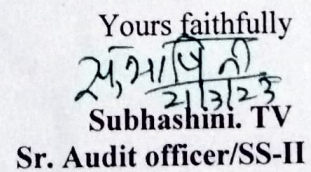 Yours faithfully
सुभाषिनी
21/3/23
Subhashini. TV
Sr. Audit officer/SS-II